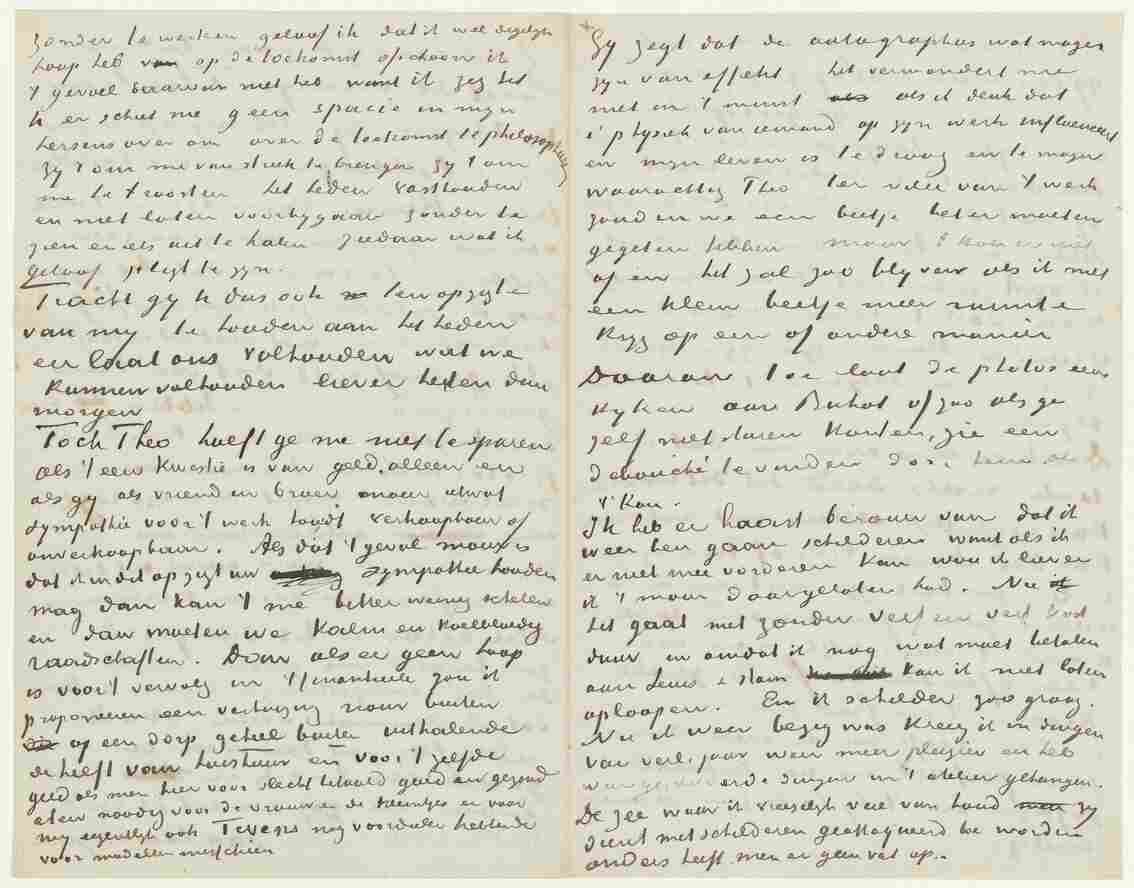 zonder te werken geloof ik dat ik wel degelijk
hoop heb van op de toekomst ofschoon ik
't gevoel daarvan niet heb want ik zeg het
U er schiet me geen spacie in mijn
hersens over om over de toekomst te philosopheeren
zij 't om me van streek te brengen zij 't om
me te troosten het heden vasthouden
en niet laten voorbijgaan zonder te
zien er iets uit te halen ziedaar wat ik
geloof pligt te zijn.
Tracht gij U dus ook ten opzigte
van mij te houden aan het heden
en laat ons volhouden wat we
kunnen volhouden liever heden dan
morgen
Toch Theo hoeft ge me niet te sparen
als 't een kwestie is van geld alleen en
als gij als vriend en broer maar etwas
sympathie voor 't werk houdt verkoopbaar of
onverkoopbaar. Als dat 't geval maar is
dat ik in dit opzigt uw sympathie houden
mag dan kan 't me bitter weinig schelen
en dan moeten we kalm en koelbloedig
raadschaffen. Dan als er geen hoop
is voor 't vervolg in 't financieele zou ik
proponeren een verhuizing naar buiten
op een dorp geheel buiten uithalende
de helft van huishuur en voor 't zelfde
geld als men hier voor slecht betaald goed en gezond
eten noodig voor de vrouw en de kleintjes en voor
mij eigentlijk ook Tevens nog voordeelen hebbende
voor modellen misschien
Gij zegt dat de autographus wat mager
zijn van effekt het verwondert me
niet in 't minst als ik denk dat
't physiek van iemand op zijn werk influenceert
en mijn leven is te droog en te mager
waarachtig Theo ter wille van 't werk
zouden we een beetje beter moeten
gegeten hebben maar 't kon er niet
af en het zal zoo blijven als ik niet
een klein beetje meer ruimte
krijg op een of andere manier
Daarom, toe laat de photos eens
kijken aan Buhot of zoo als ge
zelf niet daren konden, zie een
debouché te vinden door hem als
't kan.
Ik heb er haast berouw van dat ik
weer ben gaan schilderen want als ik
er niet mee vorderen kan wou ik liever
ik 't maar daargelaten had. Nu
het gaat niet zonder verf en verf kost
duur en omdat ik nog wat moet betalen
aan Leurs & Stam kan ik niet laten
oploopen. En ik schilder zoo graag.
Nu ik weer bezig was kreeg ik in dingen
van verl. jaar weer meer plezier en heb
weer geschilderde dingen in 't atelier gehangen.
De zee waar ik vreeselijk veel van houd zij
dient met schilderen geattaqueerd te worden
anders heeft men er geen vat op.